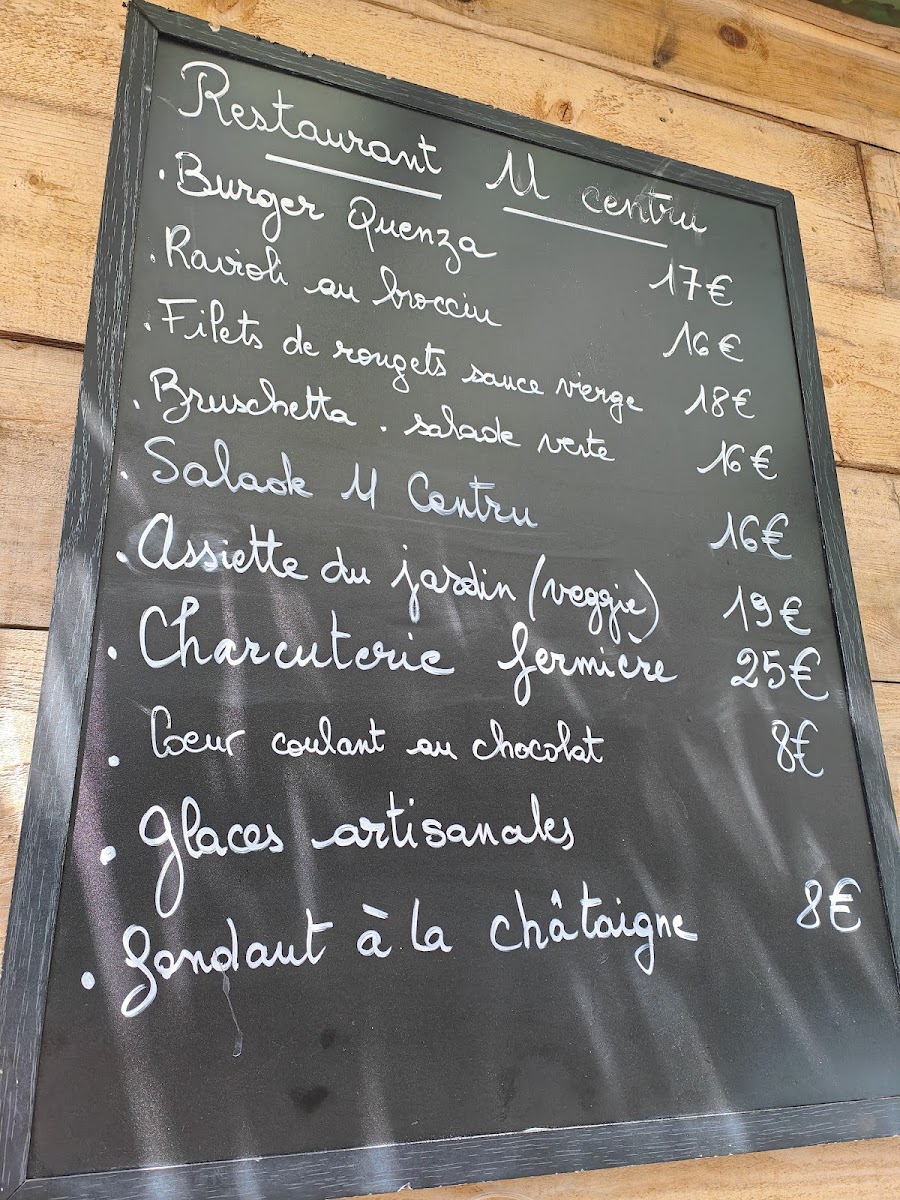 Restaurant U centru
. Burger Quenza 17€
. Ravioli au brocciu 16€
. Filets de rougets sauce vierge 18€
. Bruschetta . salade verte 16€
. Salade U Centru 16€
. Assiette du jardin (veggie) 19€
. Charcuterie fermière 25€
. Coeur coulant au chocolat 8€
. Glaces artisanales
. Fondant à la châtaigne 8€